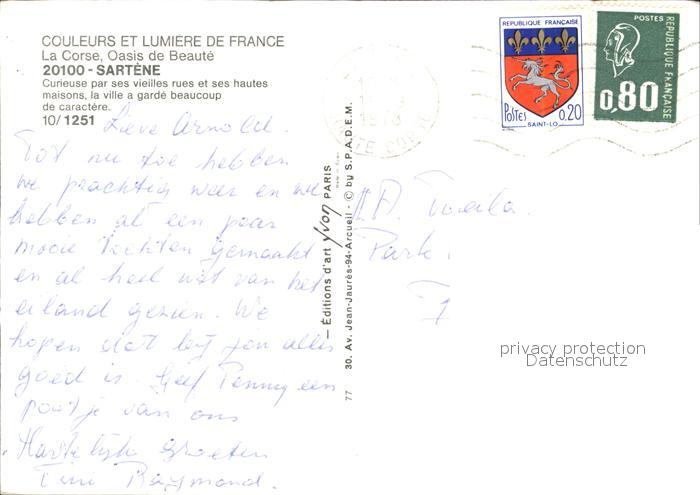 COULEURS ET LUMIÈRE DE FRANCE
La Corse, Oasis de Beauté
20100 - SARTÈNE
Curieuse par ses vieilles rues et ses hautes
maisons, la ville a gardé beaucoup
de caractère.
10/1251
Lieve Arnold.
Tot nu toe hebben
we prachtig weer en we
hebben al een paar
mooie tochten gemaakt
en al heel wat van het
eiland gezien. We
hopen dat bij jou alles
goed is. Geef Penny een
pootje van ons
Hartelijk groeten
Tini Raymond.
— Éditions d'art yvon PARIS
30, Av. Jean-Jaurès-94-Arcueil - © by S.P.A.D.E.M.
77
RÉPUBLIQUE FRANÇAISE
Postes 0,20
SAINT-LO
POSTES
0,80
RÉPUBLIQUE FRANÇAISE
1978
TE CORSE
Park.
privacy protection
Datenschutz